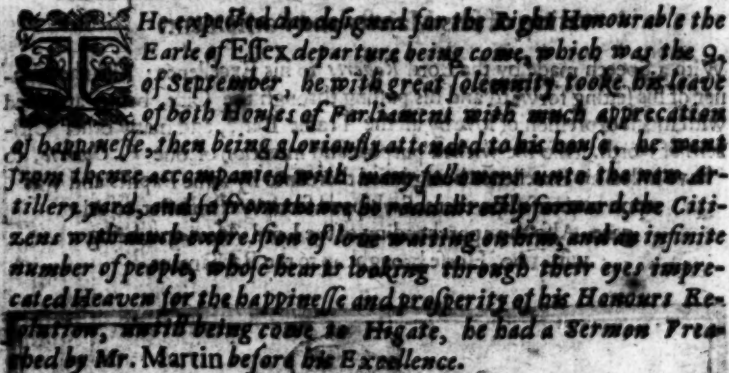 THe expected day designed for the Right Honourable the
Earle of Essex departure being come, which was the 9.
of September, he with great solemnity tooke his leave
of both Houses of Parliament with much apprecation
of happinesse, then being gloriously attended to his house, he went
from thence accompanied with many followers unto the new Ar-
tillery yard, and so from thence he rode directly forward, the Citi-
zens with much expression of love waiting on him, and an infinite
number of people, whose hearts looking through their eyes impre-
cated Heaven for the happinesse and prosperity of his Honours Re-
solution, untill being come to Higate, he had a Sermon Prea-
ched by Mr. Martin before his Excellence.